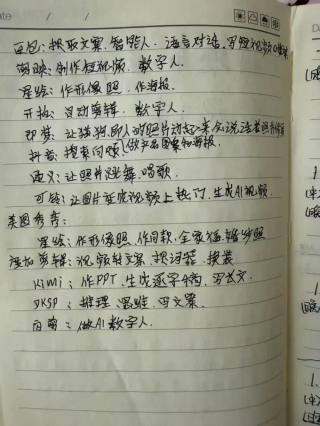 豆包：提取文案.智能人.语言对话.写短视频口播稿
剪映：制作短视频.数字人.
星绘：作形像照.作海报.
开拍：自动剪辑.数字人.
即梦：让猫狗的照片动起来会说话
抖音：搜索问题 做产品图案和海报.
通义：让照片跳舞.唱歌.
可灵：让图片变成视频上热门.生成AI视频.
美图秀秀：
星绘：作形像照.作同款.全家福.婚纱照
剪辑：视频转文案.提词器.换装
Kimi：作PPT.生成逐字稿.写长文.
DKSP：推理.思维.写文案.
：做AI数字人.